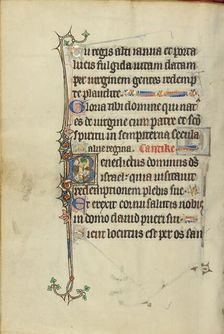 Tu regis alti ianua et porta
lucis fulgida uitam datam
per uirginem gentes redemp
te plaudite.
Gloria tibi domine qui nat
es de uirgine cum patre et sco
spiritu in sempiterna secula
regina. Cantike
Benedictus dominus deus
israel: quia uisitauit
redemptionem plebis sue
Et erexit cornu salutis nobis
in domo dauid pueri sui
Sicut locutus est per os san